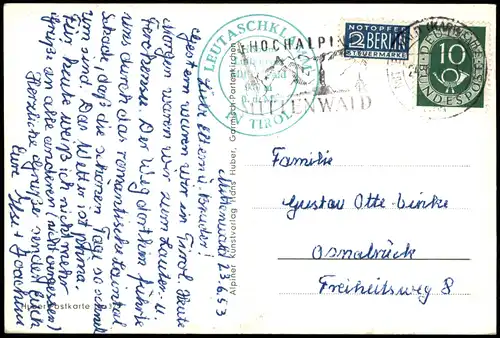 Mittenwald 23.6.53
Liebe Eltern u. Bruder!
Gestern waren wir in Tirol. Heute
morgen waren wir zum Lauter- u.
Ferchensee. Der Weg dorthin führte
uns durch das romantische Laintal.
Schade, daß die schönen Tage so schnell
um sind. Das Wetter ist prima.
Für heute weiß ich nicht mehr
Grüße an alle anderen (nicht vergessen)
Herzliche Grüße senden Euch
Eure Ilse + Joachim
Alpiner Kunstverlag Hans Huber, Garmisch-Partenkirchen
LEUTASCHKLAMM
IN TIROL
HOCHALPI
TTENWALD
NOTOPFER
2 BERLIN
STEUERMARKE
DEUTSCHE
10
BUNDESPOST
Familie
Gustav Otte-Linke
Osnabrück
Freiheitsweg 8